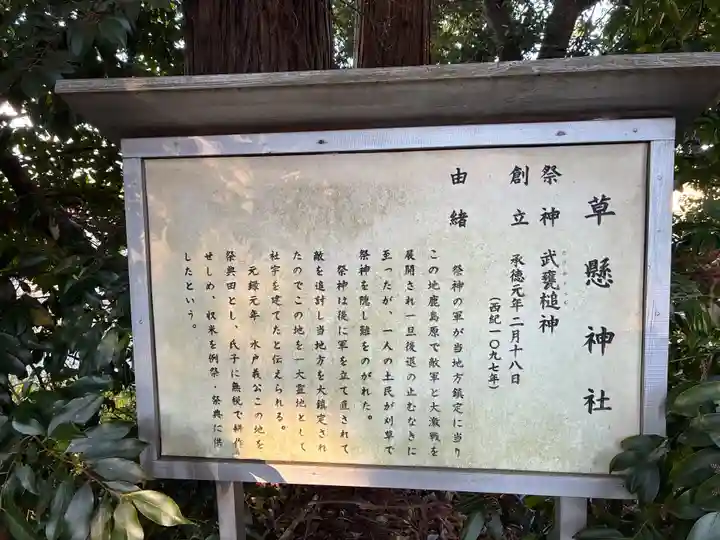 草懸神社
祭神 武甕槌神
創立 承徳元年二月十八日
(西紀一〇九七年)
由緒
祭神の軍が当地方鎮定に当り
この地鹿島原で敵軍と大激戦を
展開され一旦後退の止むなきに
至ったが、一人の土民が刈草で
祭神を隠し難をのがれた。
祭神は後に軍を立て直されて
敵を追討し当地方を大鎮定され
たのでこの地を一大霊地として
社宇を建てたと伝えられる。
元録元年 水戸義公この地を
祭典田とし、氏子に無税で耕作
せしめ、収米を例祭・祭典に供
したという。